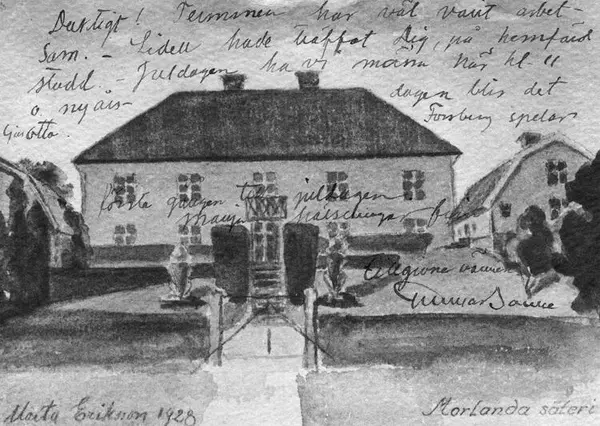 Duktigt! Terminen har väl varit arbet-
sam. - Lidell hade träffat Dig, på hemfärd
stadd. - Juldagen ha vi mässa här kl. 11
o. nyårs- dagen blir det
Gius Otto. Forsberg spelar
första gången till juldagen
många hälsningar från
Tillgivne vännen
Gunnar
Märta Erikson 1928 Morlanda säteri